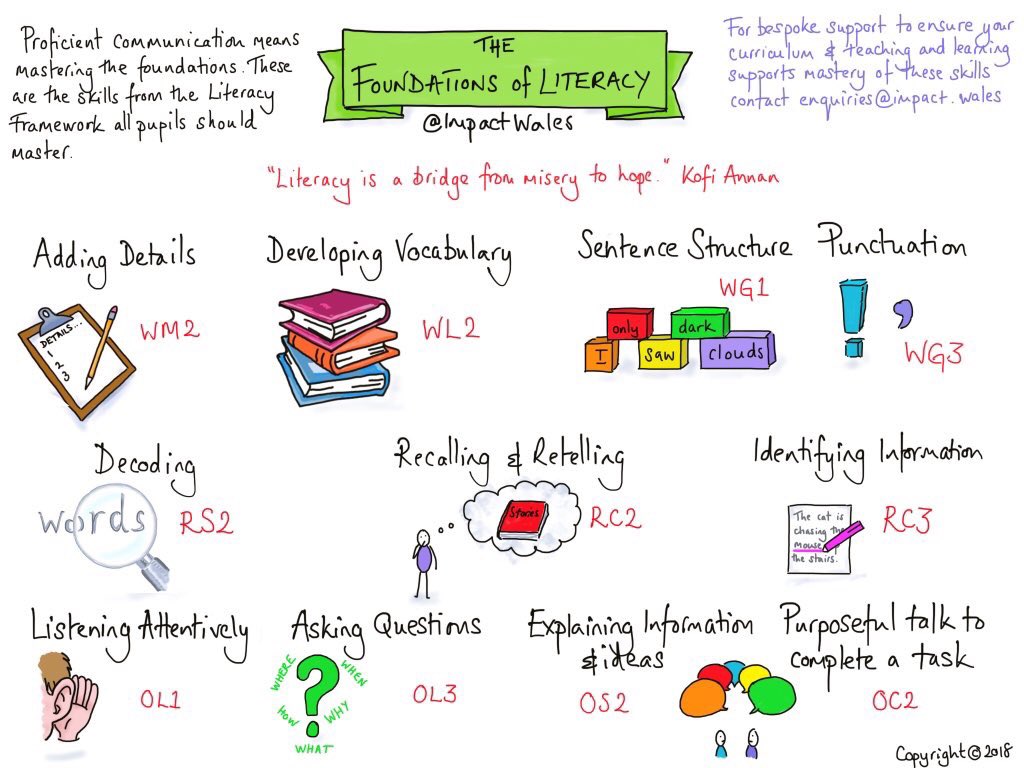 Proficient communication means
mastering the foundations. These
are the skills from the Literacy
Framework all pupils should
master.
THE
FOUNDATIONS of LITERACY
@ImpactWales
For bespoke support to ensure your
curriculum & teaching and learning
supports mastery of these skills
contact enquiries@impact.wales
"Literacy is a bridge from misery to hope." Kofi Annan
Adding Details
DETAILS...
1
2
3
WM2
Developing Vocabulary
WL2
Sentence Structure
WG1
only
dark
I
saw
clouds
Punctuation
! ,
WG3
Decoding
words
RS2
Recalling & Retelling
Stories
RC2
Identifying Information
The cat is
chasing the
mouse
the stairs.
RC3
Listening Attentively
OL1
Asking Questions
WHERE
WHEN
HOW
?
WHY
WHAT
OL3
Explaining Information
& ideas
OS2
Purposeful talk to
complete a task
OC2
Copyright © 2018